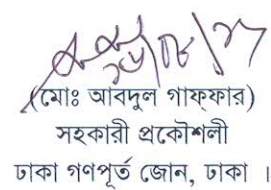 (মোঃ আবদুল গাফ্ফার)
সহকারী প্রকৌশলী
ঢাকা গণপূর্ত জোন, ঢাকা ।